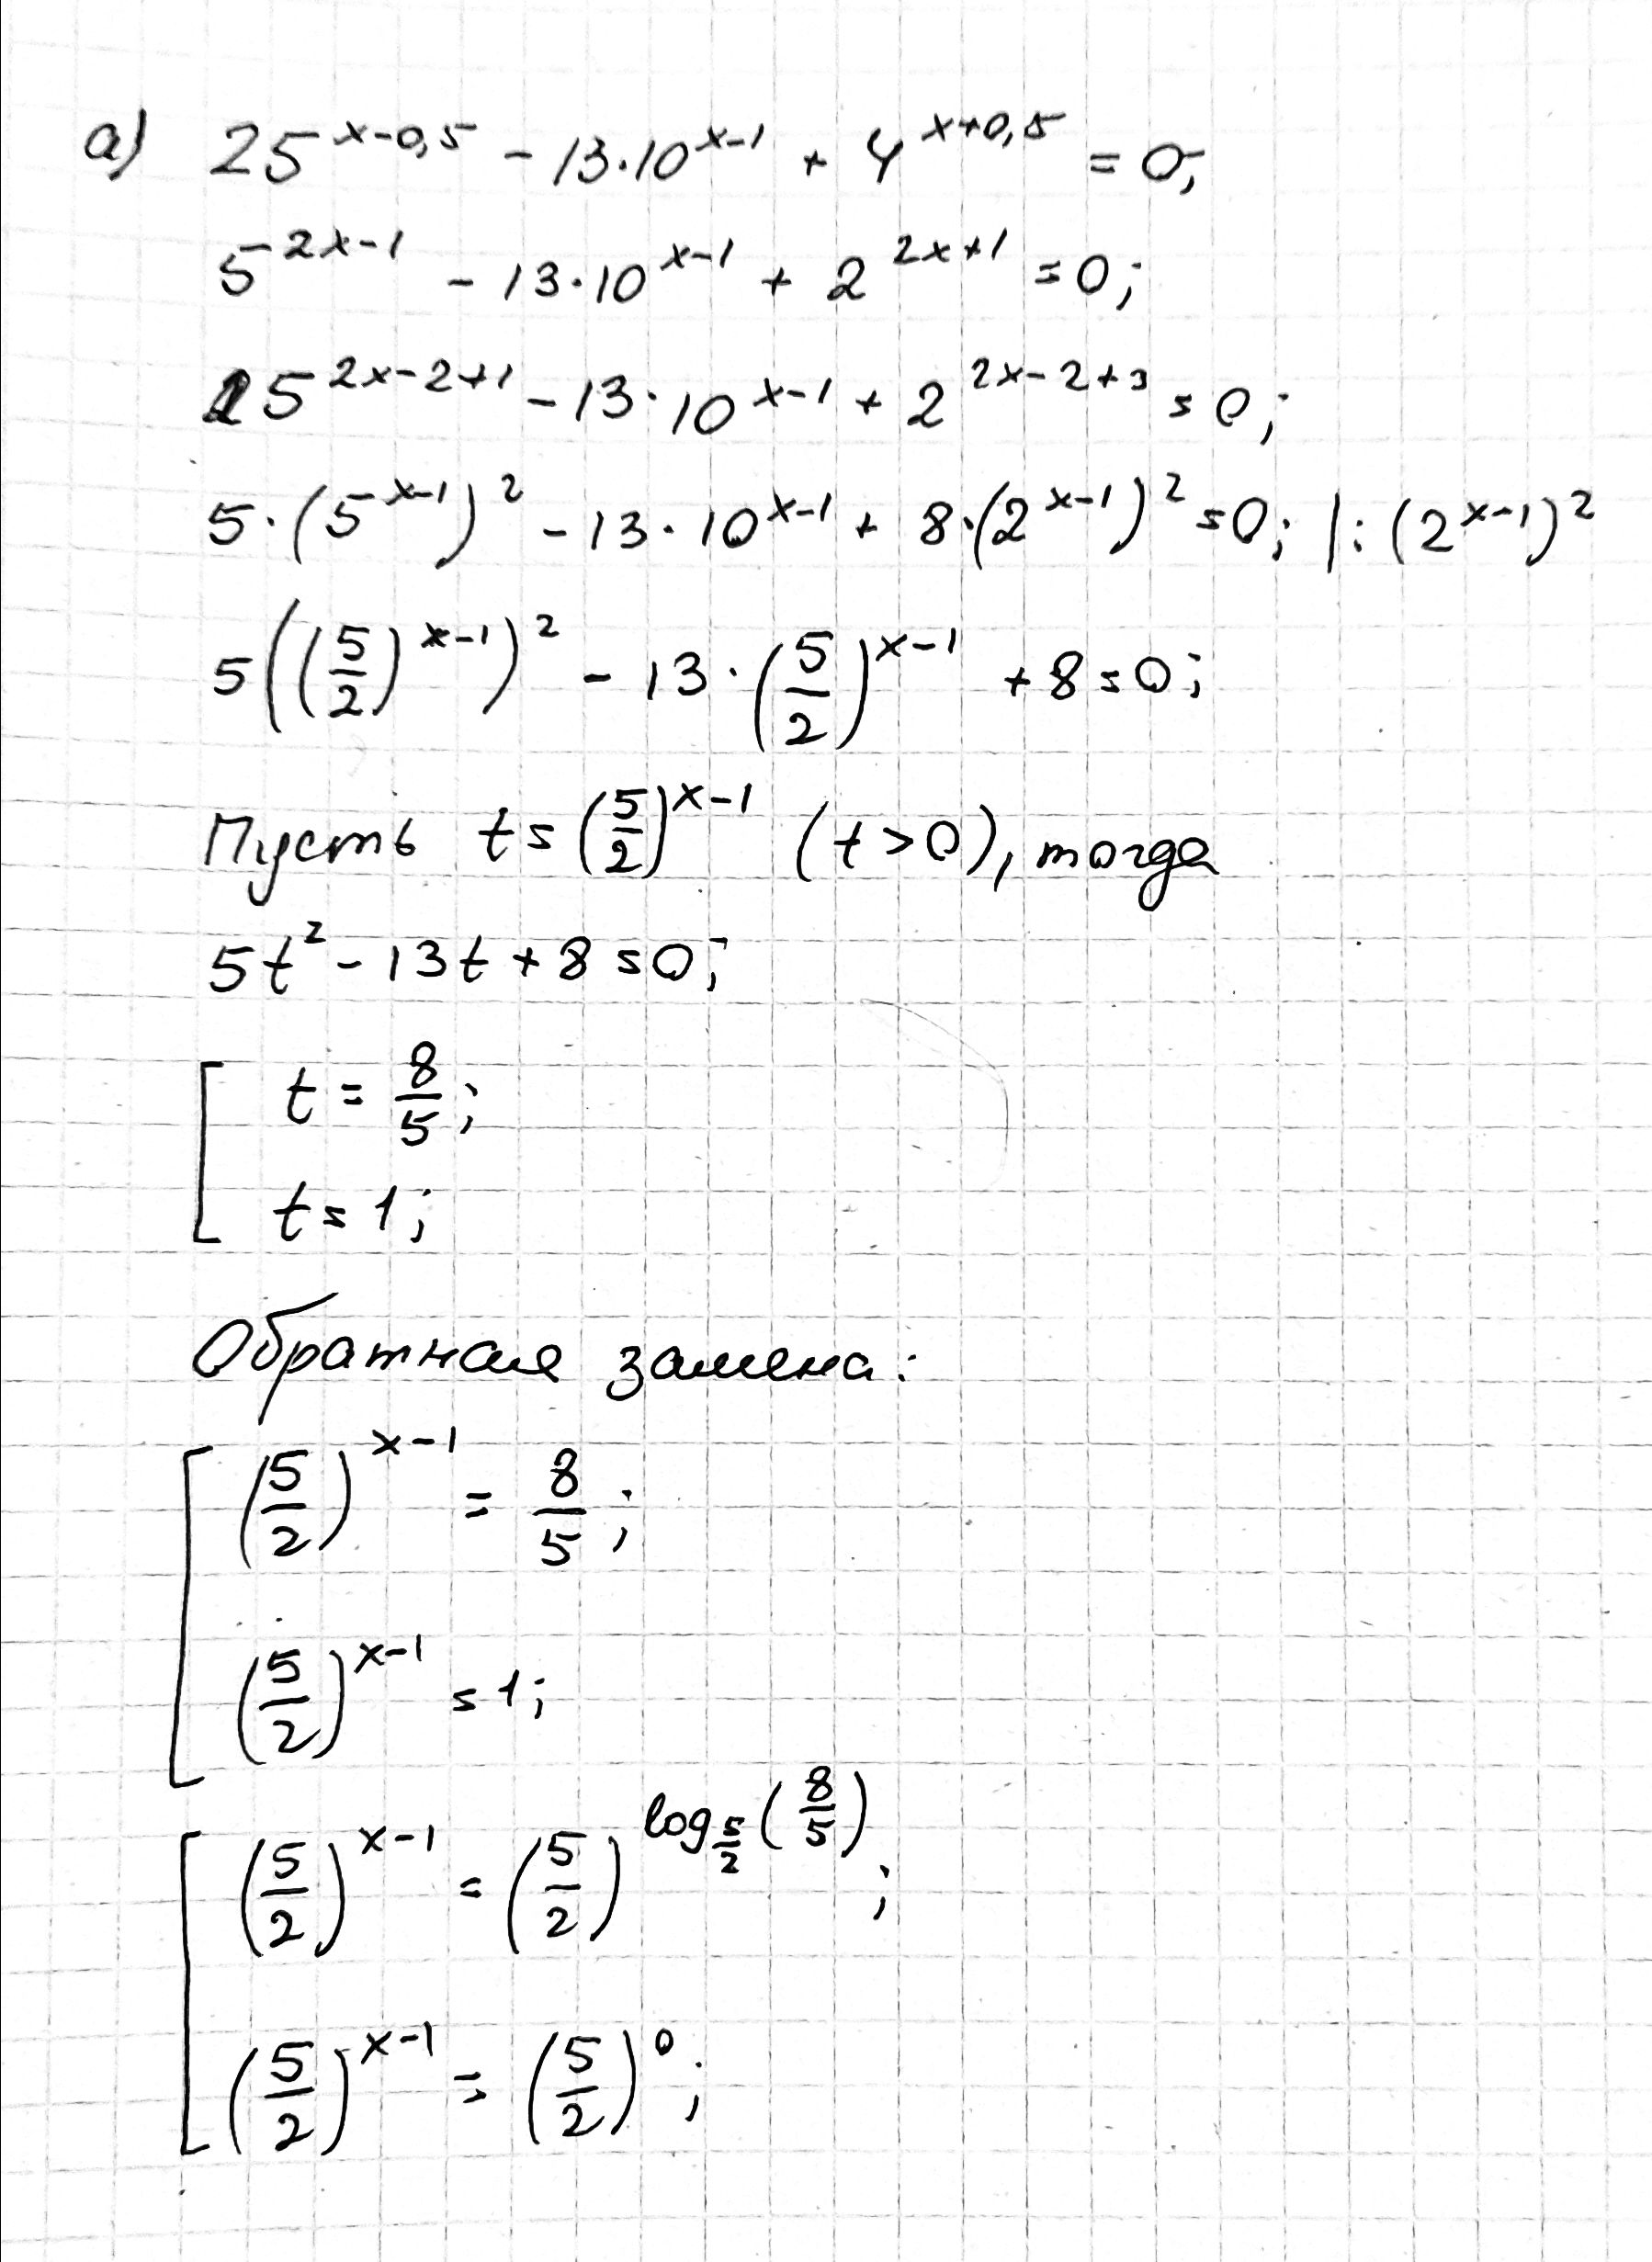 а) 25^{x-0,5} - 13·10^{x-1} + 4^{x+0,5} = 0;
5^{2x-1} - 13·10^{x-1} + 2^{2x+1} = 0;
5^{2x-2+1} - 13·10^{x-1} + 2^{2x-2+3} = 0;
5·(5^{x-1})^2 - 13·10^{x-1} + 8·(2^{x-1})^2 = 0; |:(2^{x-1})^2
5((5/2)^{x-1})^2 - 13·(5/2)^{x-1} + 8 = 0;
Пусть t = (5/2)^{x-1} (t > 0), тогда
5t^2 - 13t + 8 = 0;
[ t = 8/5;
t = 1;
Обратная замена:
[ (5/2)^{x-1} = 8/5;
(5/2)^{x-1} = 1;
[ (5/2)^{x-1} = (5/2)^{log_{5/2}(8/5)};
(5/2)^{x-1} = (5/2)^0;